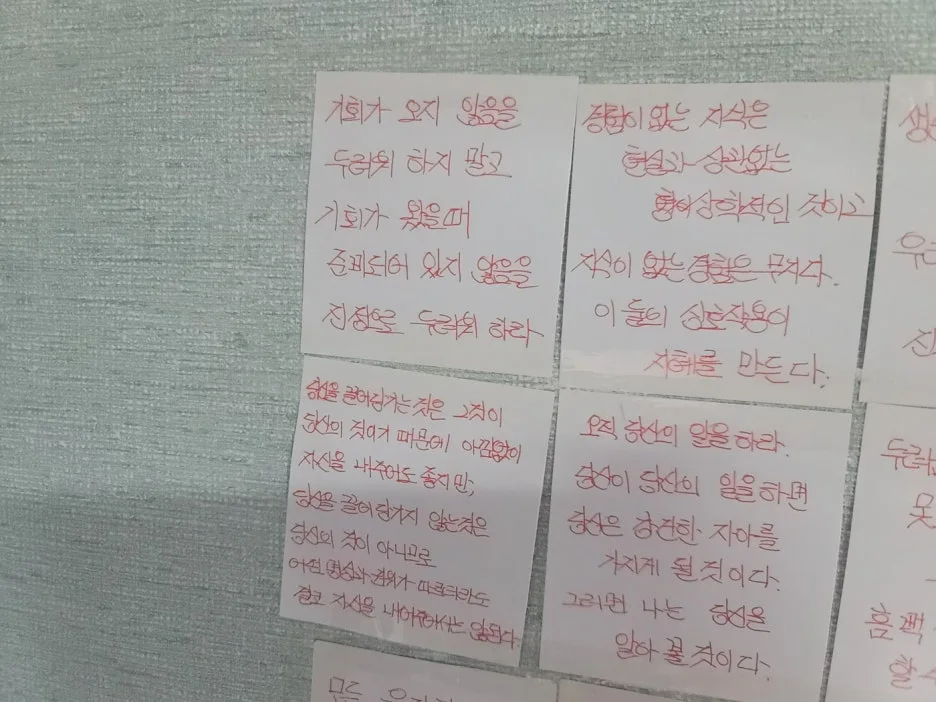 기회가 오지 않음을
두려워 하지 말고
기회가 왔을때
준비되어 있지 않음을
진정으로 두려워 하라
경험이 없는 지식은
현실과 상관없는
형이상학적인 것이고
지식이 없는 경험은 무지다.
이 둘의 상호작용이
지혜를 만든다.
당신을 끌어당기는 것은 그것이
당신의 것이기 때문에 아낌없이
자신을 내주어도 좋지만,
당신을 끌어당기지 않는것은
당신의 것이 아니므로
어떤 명성과 권위가 따르더라도
결코 자신을 내어주어서는 않된다.
오직 당신의 일을 하라.
당신이 당신의 일을 하면
당신은 강건한 자아를
가지게 될 것이다.
그러면 나는 당신을
알아 볼 것이다.
모든
못
흠뻑